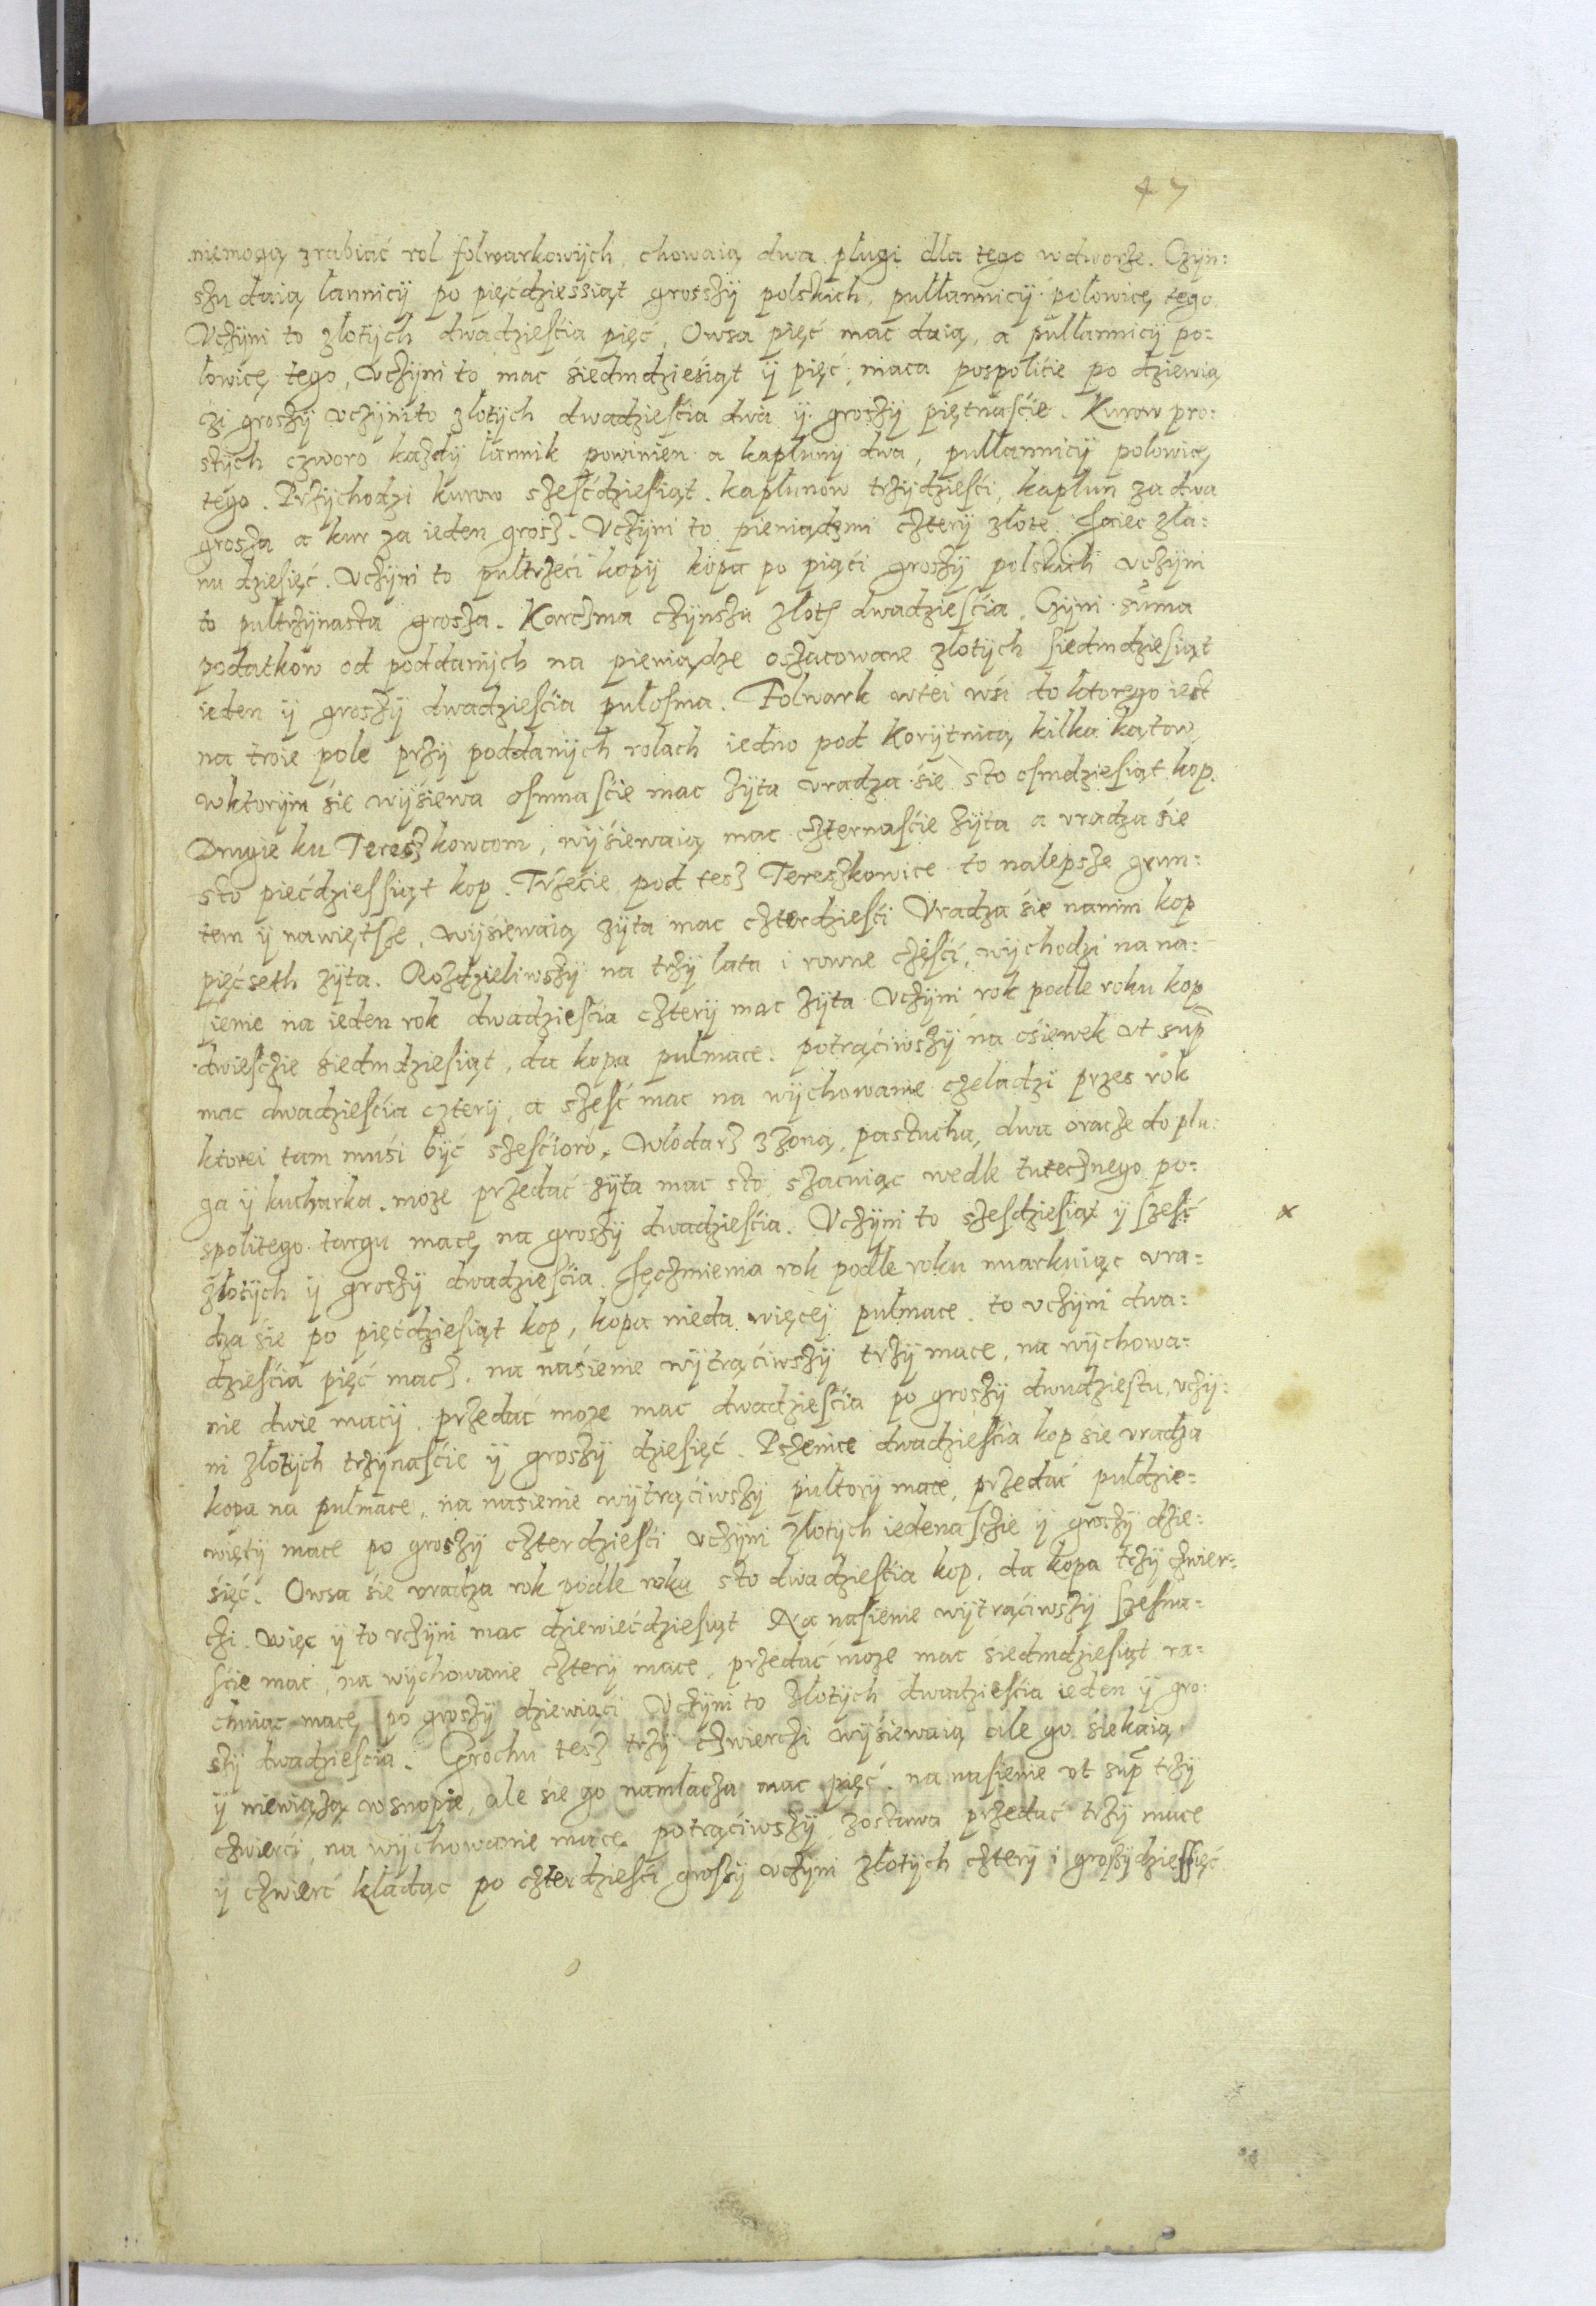 47
niemogą zrabiać rol folwarkowÿch, chowaią dwa pługi dla tego wdworze. Czÿn:
szu daią łannicÿ po pięćdziessiąt groszÿ polskich, pułłannicÿ połowicę tego.
Vczÿni to złotÿch dwadzieścia pięć, Owsa pięć mac daią, a pułłannicÿ po:
łowicę tego, vczÿni to mac śiedmdzieśiąt ÿ pięć, maca pospolićie po dziewią
czi groszÿ vczÿni to złotÿch dwadzieścia dwa ÿ groszÿ piętnaście. Kurow pro:
stÿch czworo każdÿ łannik powinien a kapłunÿ dwa, pułłannicÿ połowią
tego. Przÿchodzi kurow sześćdziesiąt. kapłunow trzÿdzieści, kapłun za dwa
grosza a kur za ieden grosz. Vczÿni to pieniądzmi czterÿ złote. Jaiec z ła:
nu dziesięć. Vczÿni to pułtrzeci kopÿ kopa po piąći groszÿ polskich vczÿni
to pułtrzÿnasta grosza. Karczma czÿnszu złotÿ dwadzieścia. Czÿni suma
podatkow od poddanÿch na pieniądze oszacowane złotÿch siedmdziesiąt
ieden ÿ groszÿ dwadzieścia pułosma. Folwark wtei wśi do ktorego iest
na troie pole przÿ poddanÿch rolach iedno pod Korÿtnicą kilka kątow
wktorÿm śie wÿśiewa osmnaście mac żÿta vradza śie sto osmdziesiąt kop.
Drugie ku Tereszkowcom, wÿśiewaią mac czternaście żÿta a vradza śie
sto pięćdziessiąt kop. Trzećie pod tesz Tereszkowice to nalepsze grun:
tem ÿ nawiętsze, wÿsiewaią żÿta mac czterdzieści Vradza śie nanim kop
pięćseth żÿta. Rozdzieliwszÿ na trzÿ lata i rowne części, wÿchodzi na na:
sienie na ieden rok dwadzieścia czterÿ mac żÿta Vczÿni rok podle roku kop
dwieśczie śiedmdziesiąt, da kopa pułmace. potrąćiwszÿ na ośiewek vt sup
mac dwadzieścia czterÿ, a sześć mac na wÿchowanie czeladzi przes rok
ktorei tam muśi bÿć sześćioro, Włodarz zżoną, pastucha, dwa oracze do płu:
ga ÿ kucharka. może przedać żÿta mac sto, szacuiąc wedle tutecznego po:
spolitego targu macę na groszÿ dwadzieścia. Vczÿni to szesdziesiąt ÿ sześć
złotÿch ÿ groszÿ dwadzieścia. Jęczmienia rok podle roku miarkuiąc vra:
dza śie po pięćdziesiąt kop, kopa nieda więceÿ pułmace. to vczÿni dwa:
dzieścia pięć macz. na naśienie wÿtrąćiwszÿ trzÿ mace, na wÿchowa:
nie dwie macÿ. przedać może mac dwadzieścia po groszÿ dwudziestu, vczÿ:
ni złotÿch trzÿnaście ÿ groszÿ dziesięć. Pszenice dwadzieścia kop sie vradza
kopa na pułmace, na nasienie wÿtrąćiwszÿ pułtorÿ mace, przedać pułdzie:
więtÿ mace po groszÿ czterdzieści vczÿni złotÿch iedenaście ÿ groszÿ dzie:
śięć. Owsa śie vradza rok podle roku sto dwadzieścia kop, da kopa trzÿ czwier:
czi. więc ÿ to vczÿni mac dziewiećdziesiąt Na nasienie wÿtrąćiwszÿ szesna:
ście mac, na wÿchowanie czterÿ mace, przedać może mac śiedmdziesiąt ra:
chuiąc macę po groszÿ dziewiąći Vczÿni to złotÿch dwadzieścia ieden ÿ gro:
szÿ dwadzieścia. Grochu tesz trzÿ czwierczi wÿśiewaią ale go śiekaią
ÿ niewiążą wsnopie, ale śie go namłacza mac pięć. na nasienie vt sup trzÿ
czwierci, na wÿchowanie macę potrąćiwszÿ, zostawa przedać trzÿ mace
ÿ czwierć kładąc po czterdzieści groszÿ vczÿni złotÿch czterÿ i groszÿ dziessięć
x